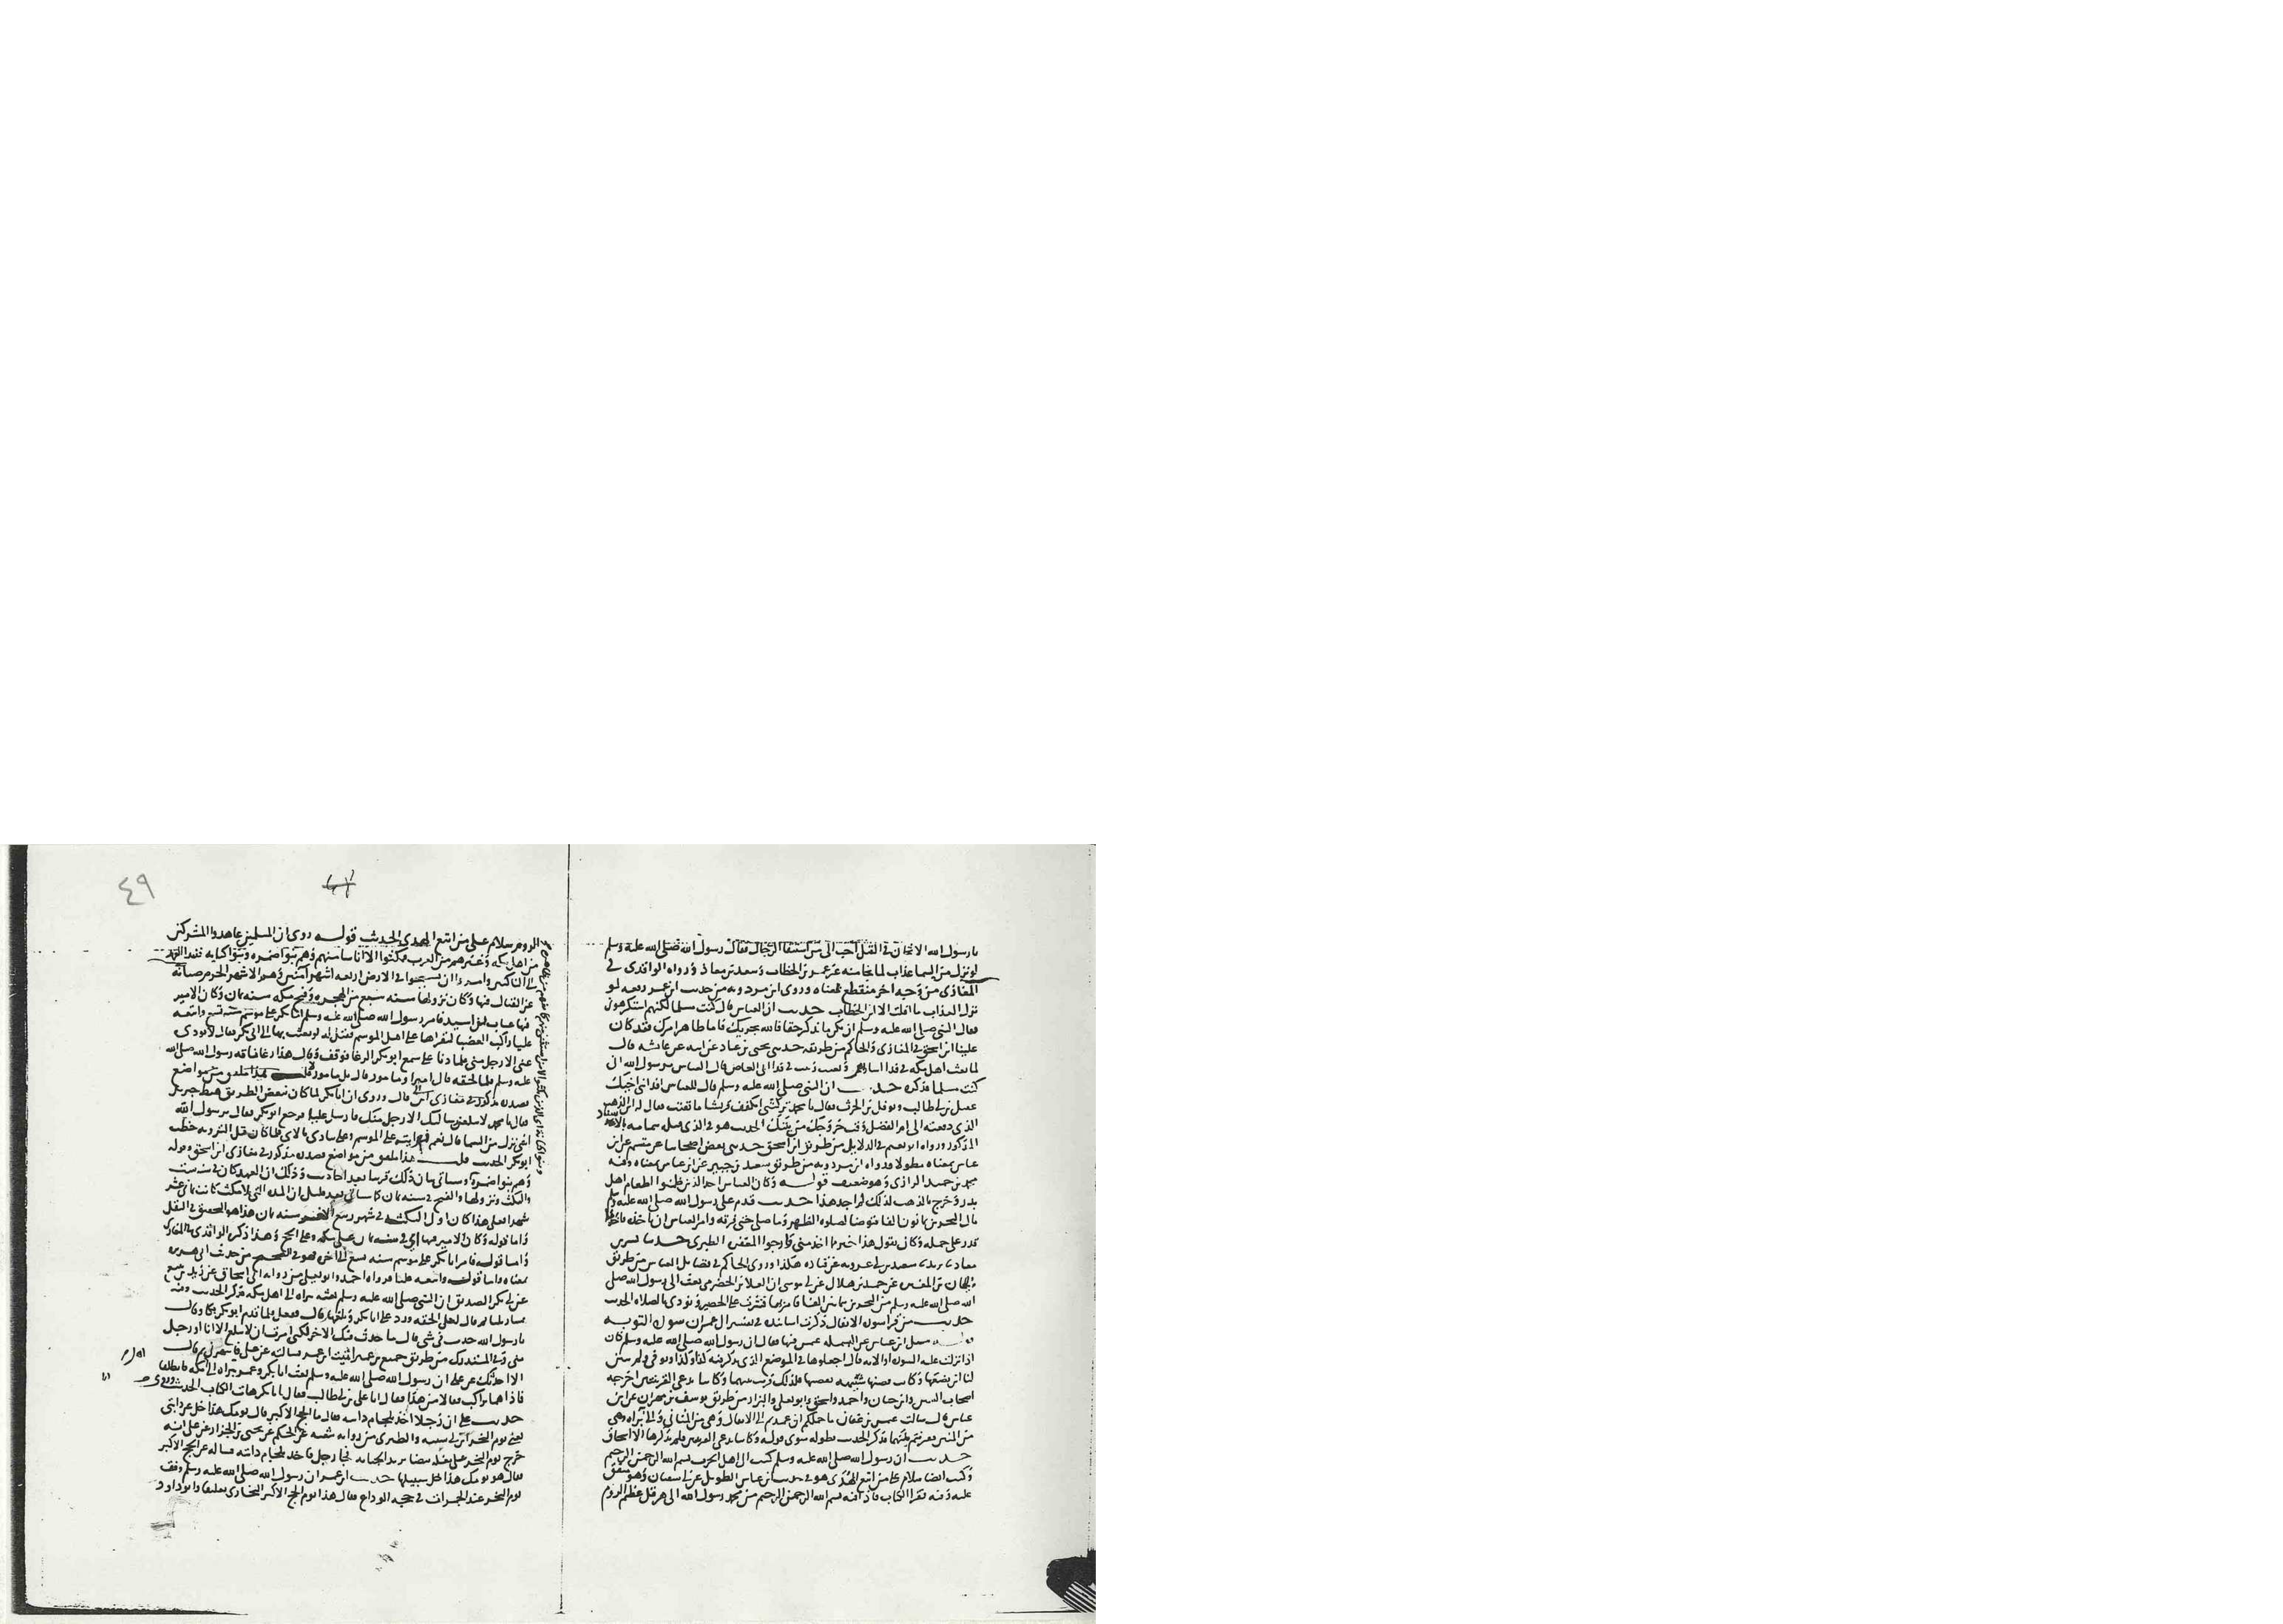 يا رسول الله الاثخان في القتل احب الى من استبقا الرجال فقال رسول الله صلى الله عليه وسلم
لو نزل من السما عذاب لما نجا منه غير عمر بن الخطاب وسعد بن معاذ ورواه الواقدي في
المغازي من وجه اخر منقطع بمعناه وروى ابن مردويه من حديث ابن عمر رفعه لو
نزل العذاب ما افلت الا ابن الخطاب حديث ان العباس قال كنت مسلما لكنهم استكرهوني
فقال النبي صلى الله عليه وسلم ان يكن ما تذكر حقا فالله يجزيك فاما ظاهر امرك فقد كان
علينا ابن اسحق في المغازي والحاكم من طريقه حدثني يحيى بن عباد عن ابيه عن عايشه قالت
لما بعث اهل مكه في فدا اساراهم وبعثت زينب في فدا ابي العاص قال العباس يرسول الله اني
كنت مسلما فذكره حديث ان النبي صلى الله عليه وسلم قال للعباس افد ابني اخيك
عقيل بن ابي طالب ونوفل بن الحرث فقال يا محمد تركتني اتكفف قريشا ما بقيت فقال له اين الذهب
الذي دفعته الى ام الفضل وقت خروجك من مكه الحديث هو في الذي قبله بتمامه بالاسناد
المذكور ورواه ابو نعيم في الدلايل من طريق ابن اسحق حدثني بعض اصحابنا عن مقسم عن ابن
عباس بمعناه مطولا ورواه ابن مردويه من طريق سعيد بن جبير عن ابن عباس بمعناه وفيه
محمد بن حميد الرازي وهو ضعيف قوله وكان العباس احد الذين ضمنوا اطعام اهل
بدر وخرج بالذهب لذلك لم اجد هذا حديث قدم على رسول الله صلى الله عليه وسلم
مال البحرين ثمانون الفا فتوضا لصلاه الظهر وما صلى حتى فرقه وامر العباس ان ياخذ منه فاخذ ما
قدر على حمله وكان يقول هذا خير مما اخذ مني وارجوا المغفره الطبري حدثنا بشر بن
معاذ ثنا يزيد ثنا سعيد بن ابي عروبه عن قتاده هكذا وروى الحاكم في فضايل العباس من طريق
سليمان بن المغيره عن حميد بن هلال عن ابي موسى ان العلا بن الحضرمي بعث الى رسول الله صلى
الله صلى الله عليه وسلم من البحرين ثمانين الفا فامر بها فنثرت على الحصير ونودي بالصلاه الحديث
حديث من قرا سوره الانفال ذكرت اسانيده في تفسير ال عمران سورة التوبه
قوله سئل ابن عباس عن البسمله عثمن فيها فقال ان رسول الله صلى الله عليه وسلم كان
اذا نزلت عليه السوره او الايه قال اجعلوها في الموضع الذي يذكر فيه كذا وكذا وتوفي ولم يبين
لنا اين نضعها وكانت قصتها شبيهه بقصتها فلذلك قرنت بينهما وكانتا تدعى القرينتين اخرجه
اصحاب السنن وابن حبان واحمد واسحق وابو يعلى والبزار من طريق يوسف بن مهران عن ابن
عباس قال سالت عثمن بن عفان ما حملكم ان عمدتم الى الانفال وهي من المثاني والى براه وهي
من المئين فقرنتم بينهما فذكر الحديث بطوله سوى قوله وكانتا تدعى القرينتين فلم يذكرها الا اسحاق
حديث ان رسول الله صلى الله عليه وسلم كتب الى اهل الحرب بسم الله الرحمن الرحيم
وكتب ايضا سلام على من اتبع الهدى هو في حديث ابن عباس الطويل عن ابي سفيان وهو متفق
عليه وفيه فقرا الكتاب فاذا فيه بسم الله الرحمن الرحيم من محمد رسول الله الى هرقل عظيم الروم
٤٩
الروم سلام على من اتبع الهدى الحديث قوله روى ان المسلمين عاهدوا المشركين
من اهل مكه وغيرهم من العرب فنكثوا الا اناسا منهم وهم بنوا ضمره وبنوا كنانه فنبذ العهد
الى الناكثين وامروا ان يسيحوا في الارض اربعه اشهر امنين وهو الاشهر الحرم صيانه
عن القتال فيها وكان نزولها سنه تسع من الهجره وفتح مكه سنه ثمان وكان الامير
فيها عتاب بن اسيد فامر رسول الله صلى الله عليه وسلم ابا بكر على موسم سنه تسع واتبعه
عليا راكب العضبا ليقراها على اهل الموسم فقيل له لو بعثت بها الى ابي بكر فقال لا يودي
عني الا رجل مني فلما دنا علي سمع ابو بكر الرغا فوقف وقال هذا رغا ناقه رسول الله صلى الله
عليه وسلم فلما لحقه قال امير او مامور قال بل مامور قلت هذا ملفق من مواضع
قال وروي ان ابا بكر لما كان ببعض الطريق هبط جبريل
فقال يا محمد لا يبلغن رسالتك الا رجل منك فارسل عليا فرجع ابو بكر فقال يرسول الله
اشي نزل من السما قال نعم فسر انت على الموسم وعلي ينادي بالاي فلما كان قبل الترويه خطب
ابو بكر الحديث قلت هذا ملفق من مواضع مذكور في مغازي ابن اسحق وقوله
وهم بنوا ضمره وسياتي بيان ذلك قريبا بعد احاديث وذلك ان العهد كان في سنه ست
والنكث ونزولها والفتح في سنه ثمان كما سياتي بعد قليل
شهرا فعلى هذا كان اول النكث في شهر ربيع الاخر سنه ثمان هذا هو التحقيق في النقل
واما قوله وكان الامير فيها اي في سنه ثمان على مكه وعلى الحج وهذا ذكره الواقدي في المغازي
واما قوله فامر ابا بكر على موسم سنه تسع الى اخره فهو في الصحيح من حديث ابي هريره
بمعناه واما قوله واتبعه عليا فرواه احمد وابو يعلى من روايه ابي اسحاق عن زيد بن يثيع
عن ابي بكر الصديق ان النبي صلى الله عليه وسلم بعثه ببراه الى اهل مكه فذكر الحديث وفيه
قال لعلي الحقه ورد علي ابا بكر وبلغها قال ففعل فلما قدم ابو بكر بكا وقال
يا رسول الله حدث في شي قال ما حدث فيك الا خير لكني امرت ان لا يبلغ الا انا او رجل
مني وفي المستدرك من طريق جميع بن عمير اتيت ابن عمر فسالته عن علي فانتهرني ثم قال
الا احدثك عن علي ان رسول الله صلى الله عليه وسلم بعث ابا بكر وعمر ببراه الى مكه فانطلقا
فاذا هما براكب فقالا من هذا فقال انا علي بن ابي طالب فقال يا ابا بكر هات الكتاب الحديث
حديث علي ان رجلا اخذ بلجام دابته فقال ما الحج الاكبر قال يومك هذا خل عن دابتي
يعني يوم النحر ابن ابي شيبه والطبري من روايه شعبه عن الحكم عن يحيى بن الجزار عن علي انه
خرج يوم النحر على بغله بيضا يريد الجبانه فجا رجل فاخذ بلجام دابته فساله عن الحج الاكبر
فقال هو يومك هذا خل سبيلها حديث ابن عمر ان رسول الله صلى الله عليه وسلم وقف
يوم النحر عند الجمرات في حجه الوداع فقال هذا يوم الحج الاكبر البخاري تعليقا وابو داود